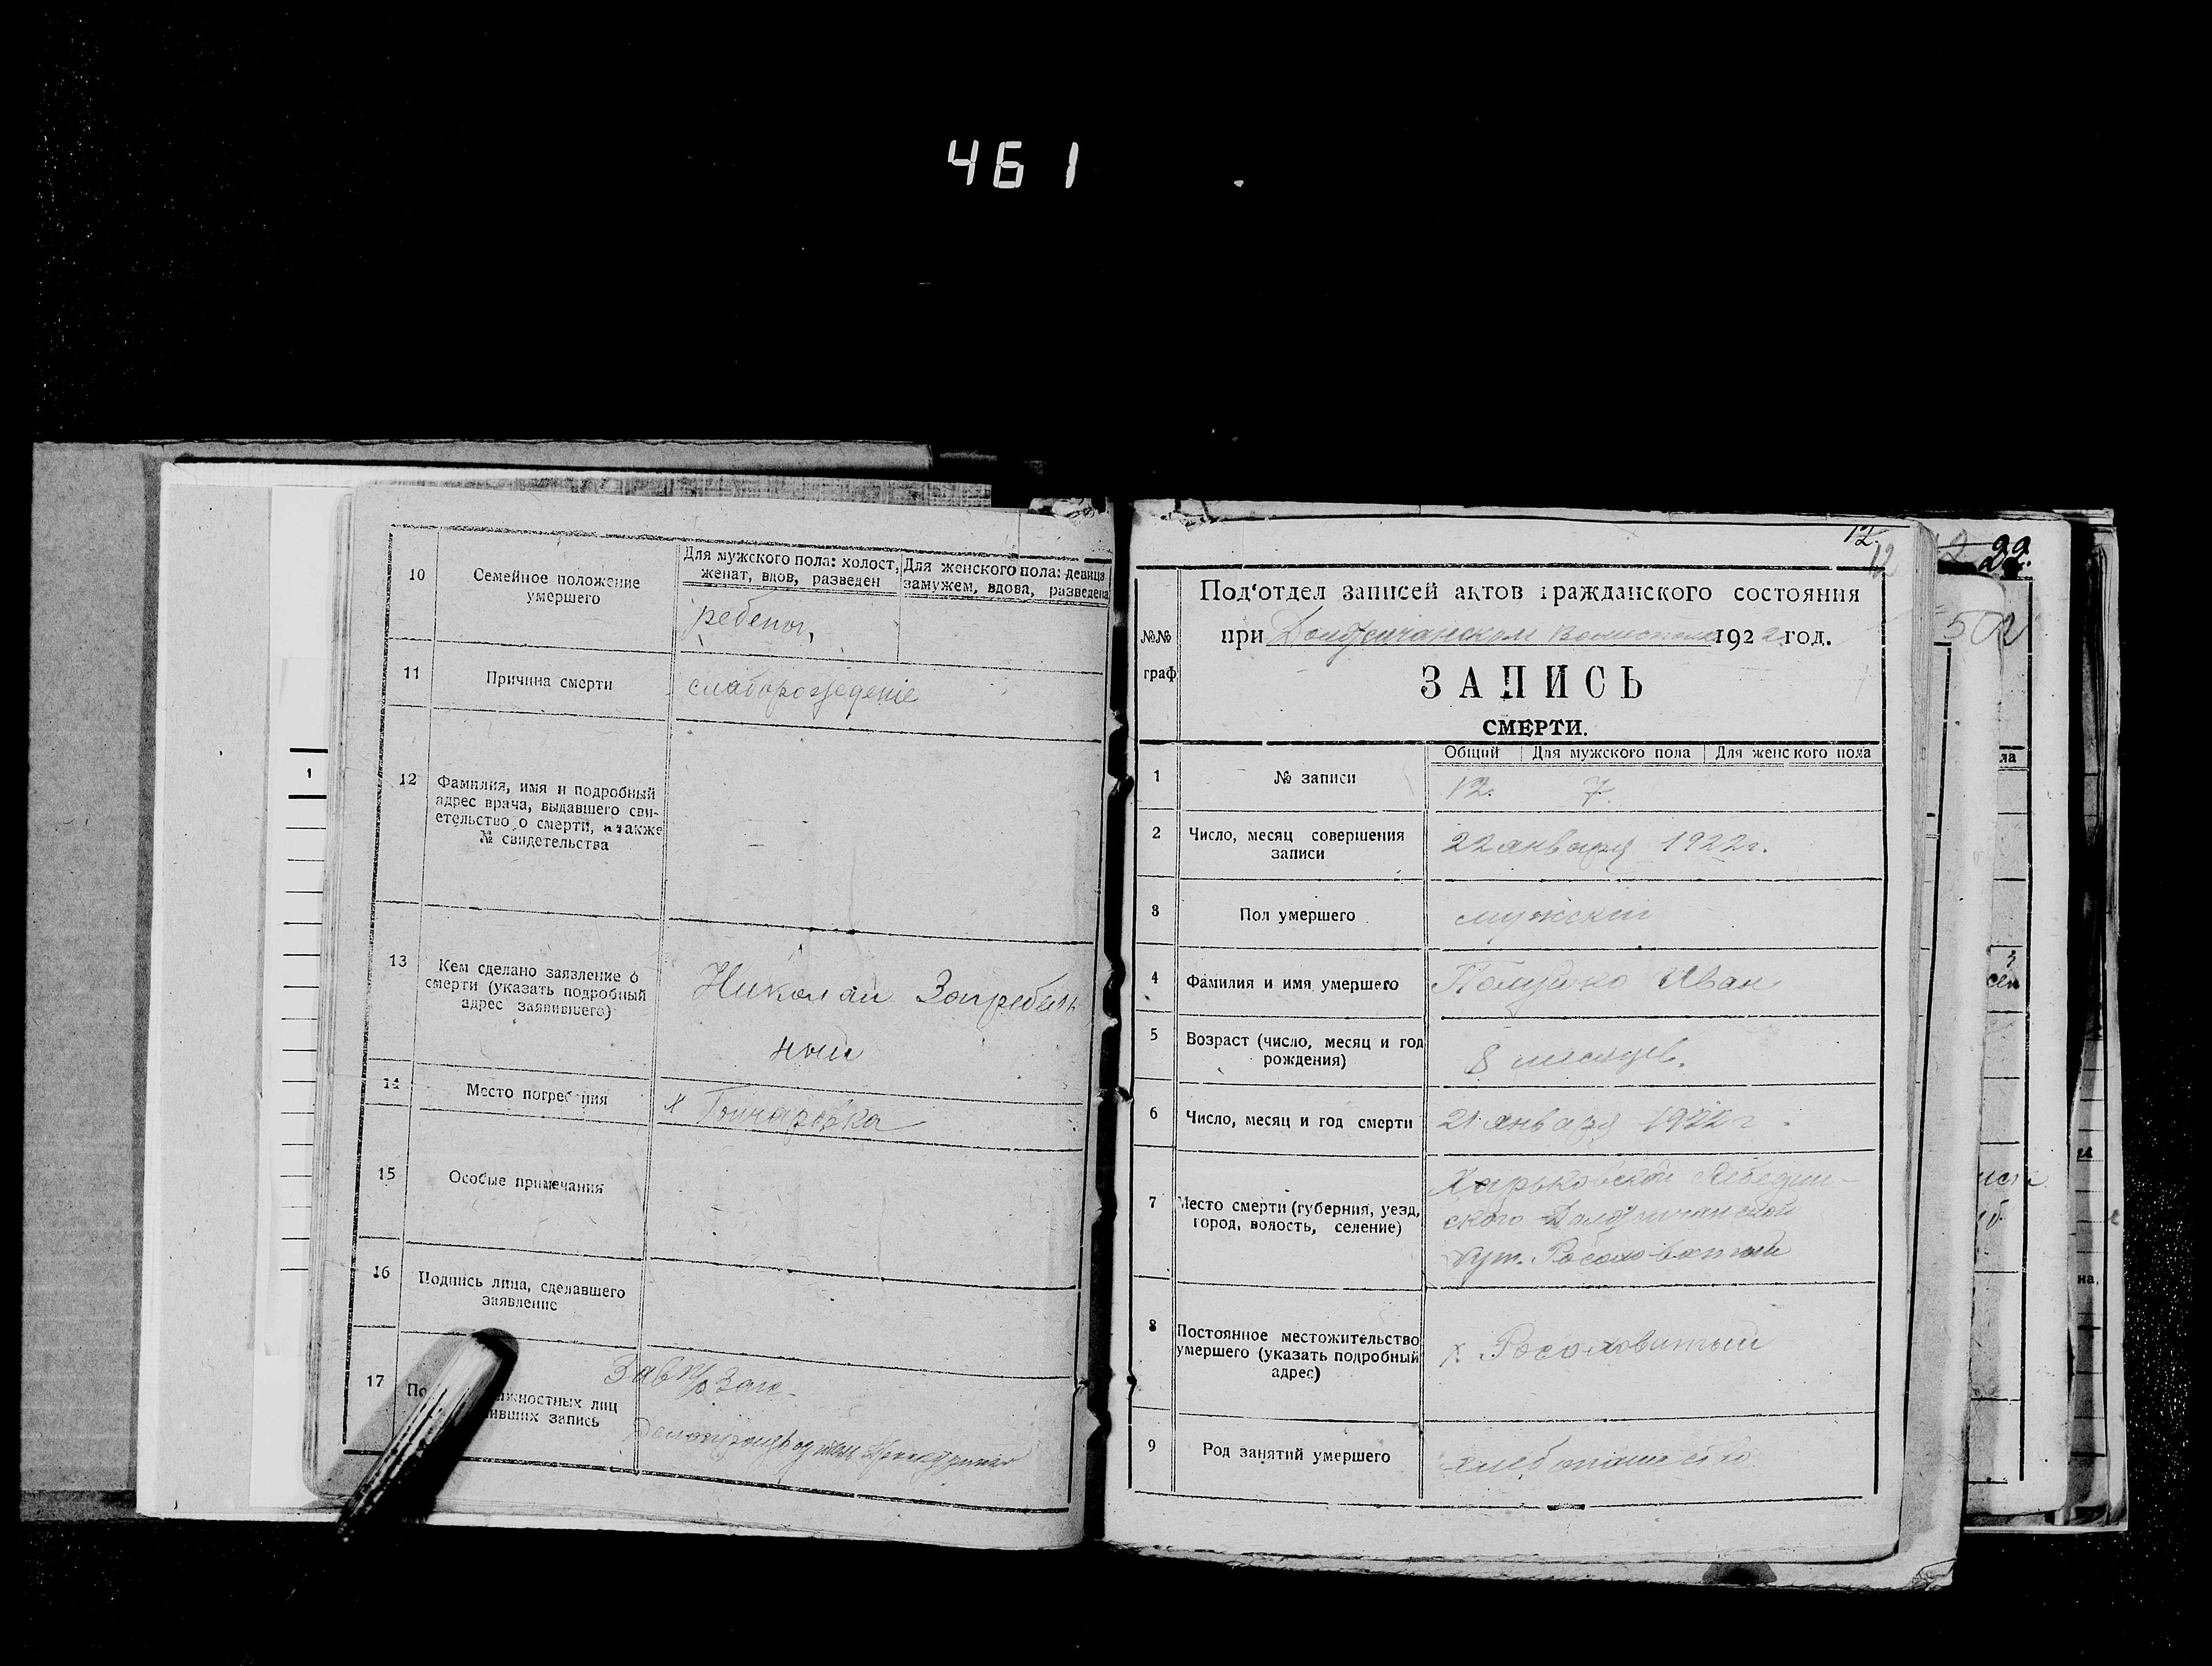 461
10
Семейное положение
умершего
Для мужского пола: холост,
женат, вдов, разведен
Для женского пола: девица
замужем, вдова, разведена
ребенок,
11
Причина смерти
слаборожденіе
12
Фамилия, имя и подробный
адрес врача, выдавшего сви-
етельство о смерти, а также
№ свидетельства
13
Кем сделано заявление о
смерти (указать подробный
адрес заявившего)
Николай Загребель
ный
14
Место погребения
х Гончаровка
15
Особые примечания
16
Подпись лица, сделавшего
заявление
17
По жностных лиц
ивших запись
Зав п/о Загс
Делопроизводитель
12.
12
22.
№№
граф
Под'отдел записей актов гражданского состояния
при 1922 год.
ЗАПИСЬ
СМЕРТИ.
Общий
Для мужского пола
Для женского пола
1
№ записи
12.
7.
2
Число, месяц совершения
записи
22 января 1922 г.
3
Пол умершего
мужской
4
Фамилия и имя умершего
Иван
5
Возраст (число, месяц и год
рождения)
8 месяцев.
6
Число, месяц и год смерти
21 января 1922 г
7
Место смерти (губерния, уезд,
город, волость, селение)
Харьковской Лебедин-
ского
хут. Росоховатый
8
Постоянное местожительство
умершего (указать подробный
адрес)
х. Росоховатый
9
Род занятий умершего
хлебопашество